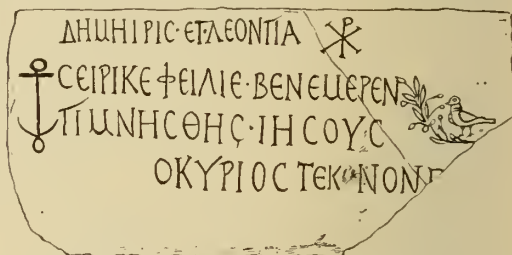 ΔΗΜΗΙΡΙC·ΕΤ·ΛΕΟΝΤΙΑ ☧
CΕΙΡΙΚΕ ΦΕΙΛΙΕ·ΒΕΝΕΜΕΡΕΝ
ΤΙ ΜΝΗCΘΗC·ΙΗCΟΥC
ΟΚΥΡΙΟC ΤΕΚ